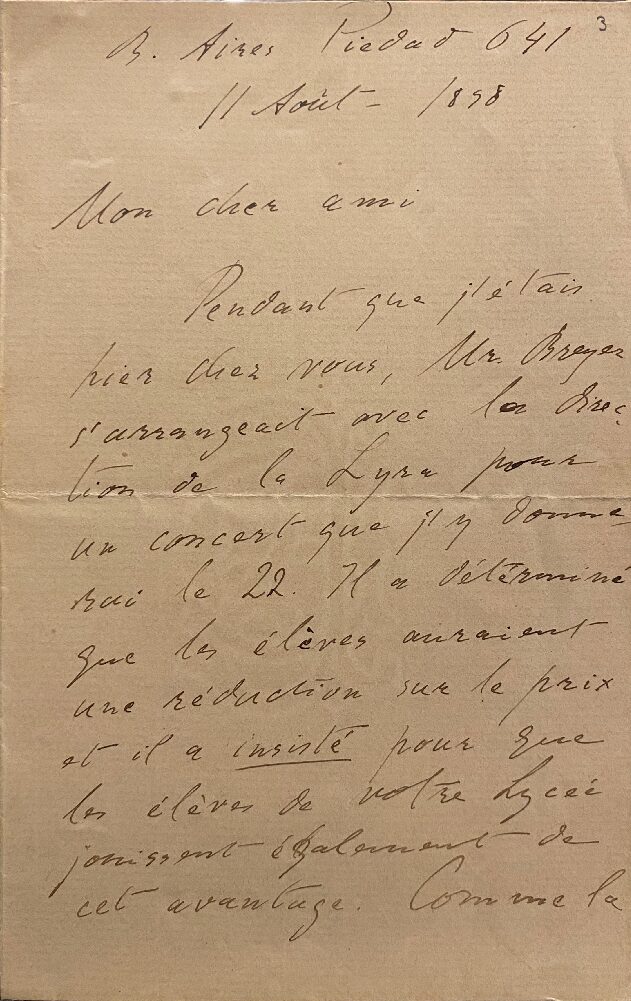 3
B. Aires Piedad 641
11 Août - 1898
Mon cher ami
Pendant que j'étais
hier chez vous, Mr. Breyer
s'arrangeait avec la direc-
tion de la Lyra pour
un concert que j'y donne
rai le 22. Il a déterminé
que les élèves auraient
une réduction sur le prix
et il a insisté pour que
les élèves de votre Lycée
jouissent également de
cet avantage. Comme la